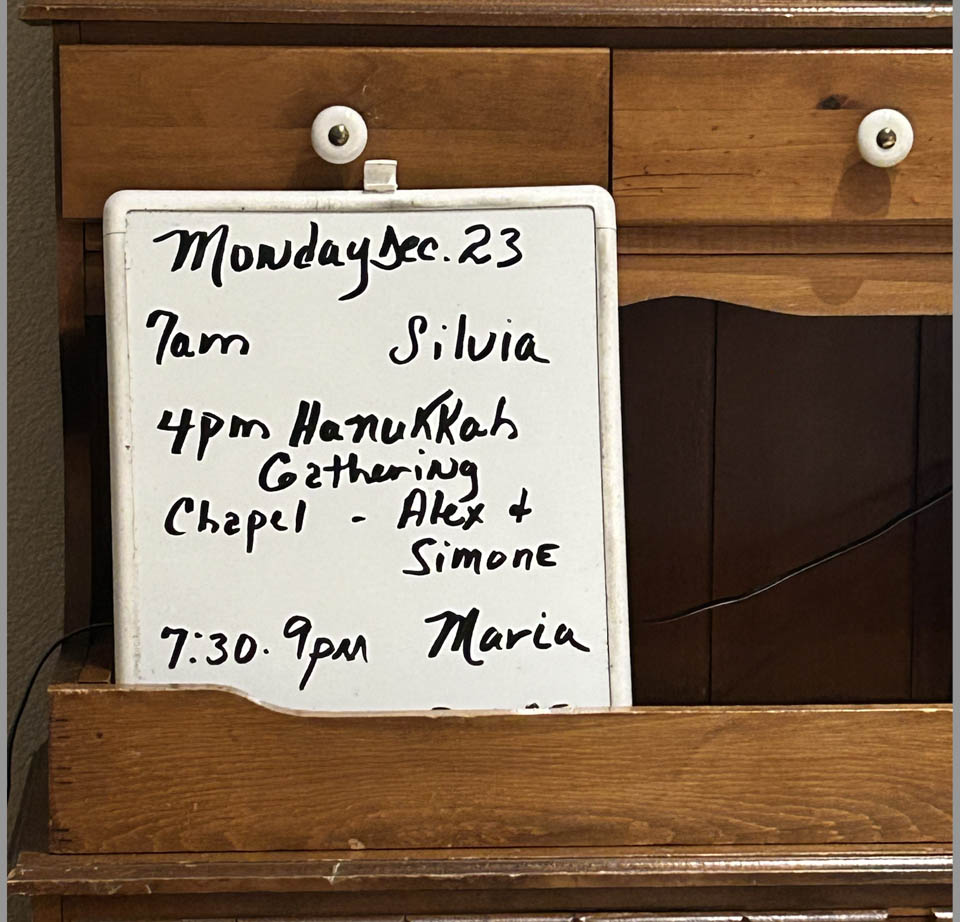 Monday Dec. 23
7am Silvia
4pm Hanukkah
Gathering
Chapel - Alex &
Simone
7:30. 9pm Maria